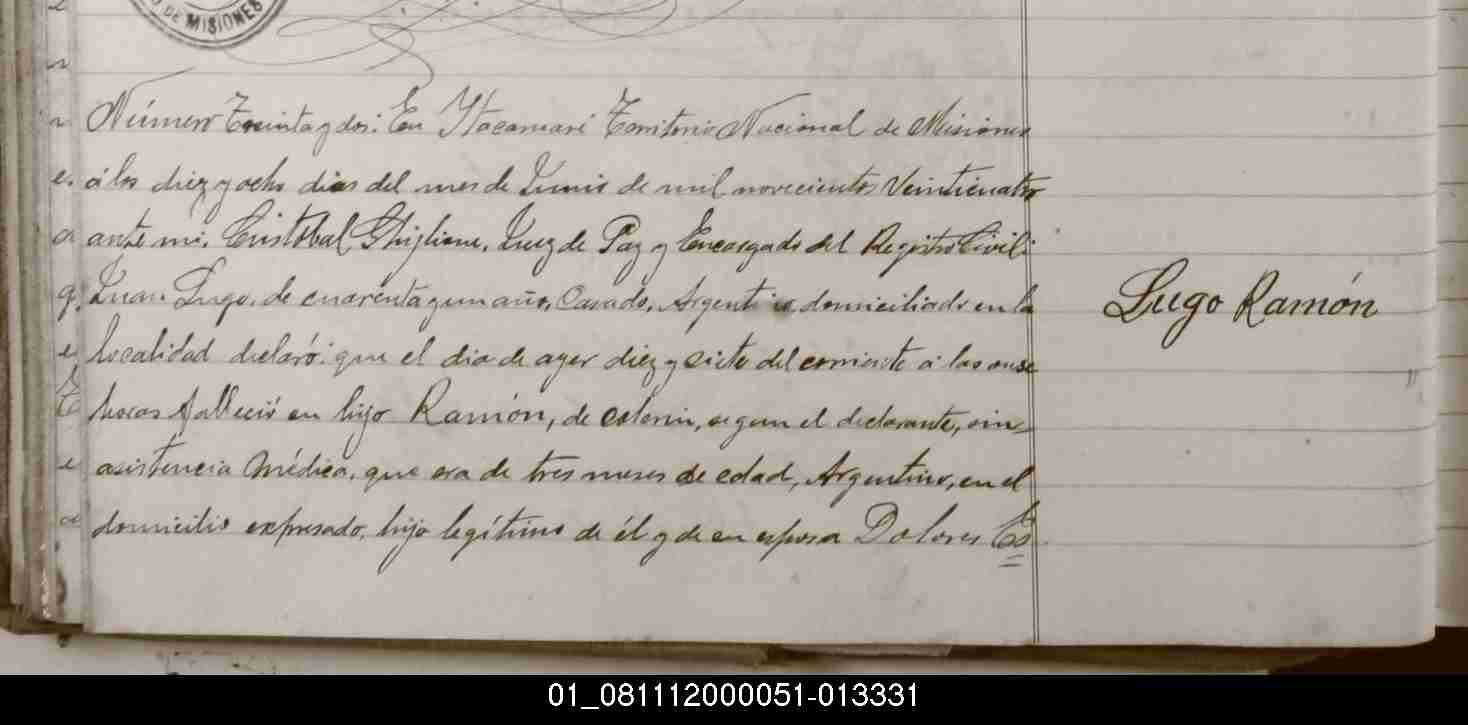 O DE MISIONES
Número Treinta y dos: En Itacaruaré Territorio Nacional de Misiones
á los diez y ocho dias del mes de Junio de mil novecientos Veinticuatro
ante mi, Cristobal Ghiglione, Juez de Paz y Encargado del Registro Civil:
Juan Lugo, de cuarenta y un años, Casado, Argentino, domiciliado en la
localidad declaró: que el dia de ayer diez y siete del corriente á las onse
horas falleció su hijo Ramón, de , segun el declarante, sin
asistencia Médica, que era de tres meses de edad, Argentino, en el
domicilio expresado, hijo legítimo de él y de su esposa Dolores Es
Lugo Ramón
01_081112000051-013331